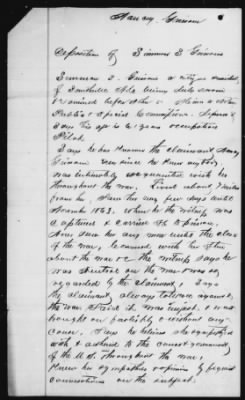 Nancy Grissom
Deposition of Simmons E Grissom
Simmons E. Grissom a citizen resident
of being duly sworn
& examined before
Public & Special Commissioner.
Says his age is 61 years occupation
Says he has known the claimant Nancy
Grissom ever since he knew any thing
was intimately acquainted with her
throughout the war. Lived about 7 miles
from her. Saw her every few days until
November 1863. when he the witness was
captured & carried off to prison,
saw her any more until the close
of the war, he conversed with her often
about the war &c the witness says he
was neutral on the war & was so
regarded by the claimant, Says
the claimant, always talked against,
the war. Said it was unjust, & was
brought on foolishly & without any
cause. Says he believes she sympathized
with & adhered to the cause & government
of the U.S. throughout the war,
knew her sympathies & opinions by frequent
conversations on the subject.